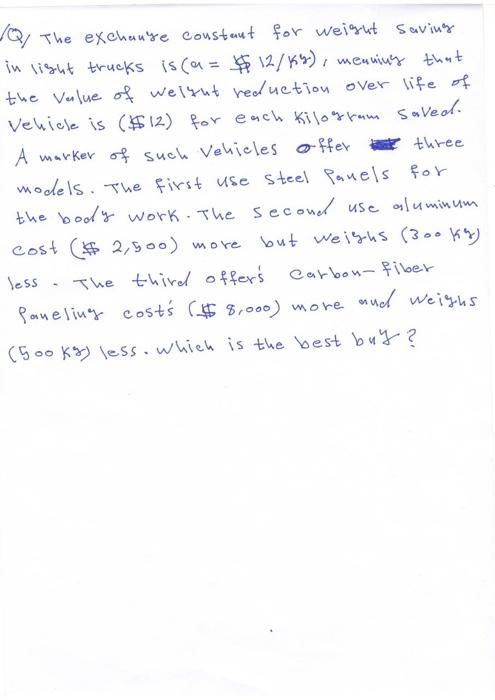 Q/ The exchange constant for weight saving
in light trucks is (a = $ 12/Kg), meaning that
the value of weight reduction over life of
Vehicle is ($12) for each kilogram saved.
A marker of such Vehicles offer three
models. The first use steel Panels for
the body work. The second use aluminum
cost ($ 2,500) more but weighs (300 Kg)
less. The third offer's carbon-fiber
Paneling cost's ($ 8,000) more and weighs
(500 Kg) less. which is the best buy?